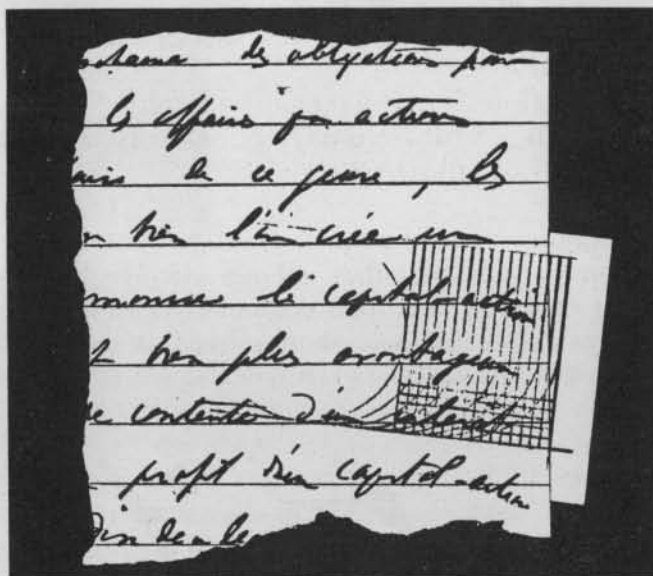 des obligations pour
les affaires par actions
de ce genre, les
bien l'on crée un
le capital-action
bien plus avantageux
contente d'un intérêt
profit d'un capital-action